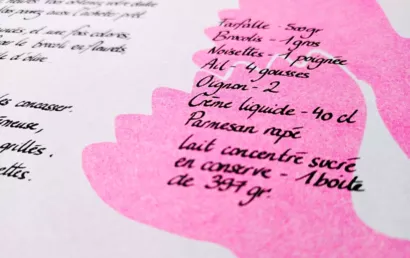 suets, et une fois colorés,
le brocoli en fleurets
d'olive
les concasser.
grillés.
Farfalle - 500gr
Brocolis - 1 gros
Noisettes - 1 poignée
Ail - 4 gousses
Oignon - 2
Crème liquide - 40 cl
Parmesan rapé
lait concentré sucré
en conserve - 1 boîte
de 397 gr.